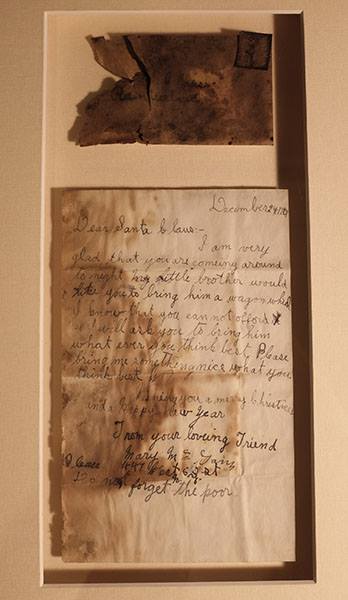 December 24
Dear Santa Claus:-
I am very
glad that you are coming around
to night my little brother would
like you to bring him a wagon which
I know that you cannot afford
so I will ask you to bring him
what ever you think best Please
bring me something nice what you
think best
I wish you a merry Christmas
and a happy new year
From your loveing Friend
Mary Mc Gann
Please
Do not forget the poor